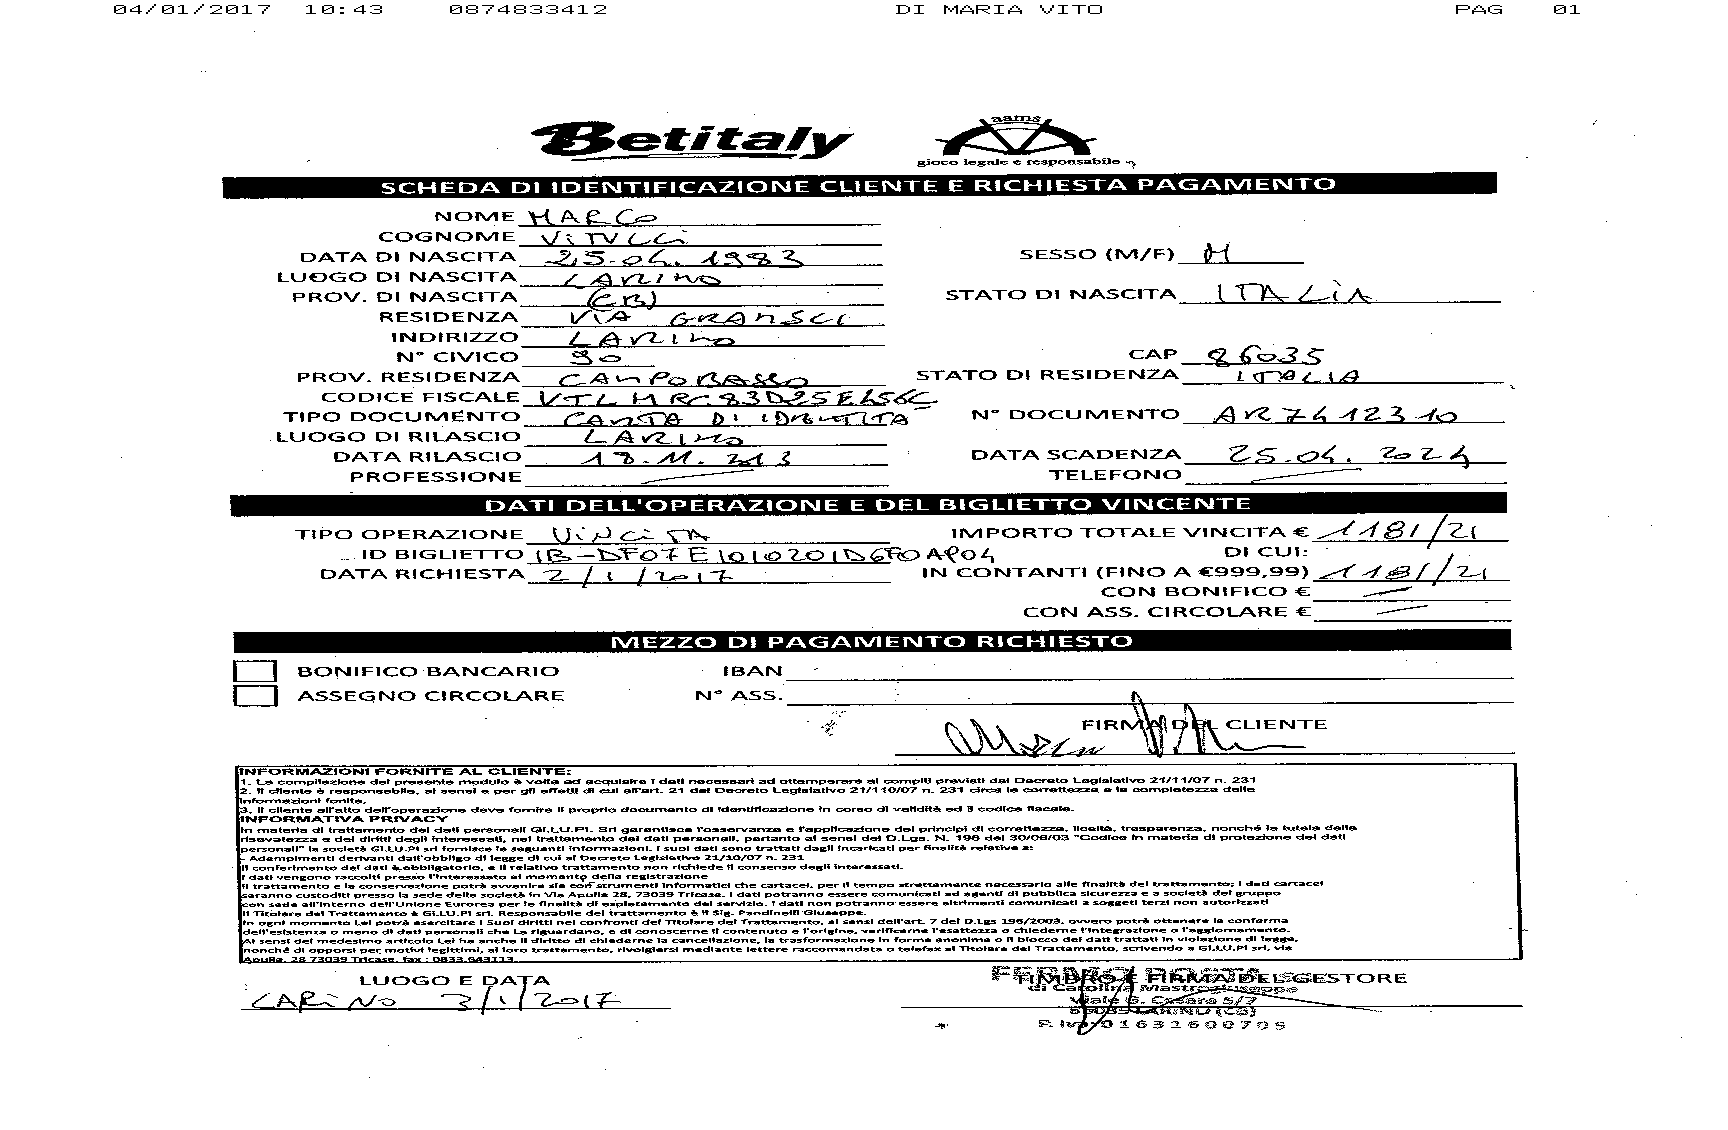 04/01/2017 10:43 0874833412 DI MARIA VITO PAG 01
Betitaly
aams
gioco legale e responsabile
SCHEDA DI IDENTIFICAZIONE CLIENTE E RICHIESTA PAGAMENTO
NOME MARCO
COGNOME VITUCCI
DATA DI NASCITA 25.04.1983 SESSO (M/F) M
LUOGO DI NASCITA LARINO
PROV. DI NASCITA (CB) STATO DI NASCITA ITALIA
RESIDENZA VIA GRAMSCI
INDIRIZZO LARINO
N° CIVICO 90 CAP 86035
PROV. RESIDENZA CAMPOBASSO STATO DI RESIDENZA ITALIA
CODICE FISCALE VTLMRC83D25E456C
TIPO DOCUMENTO CARTA DI IDENTITA N° DOCUMENTO AR7412310
LUOGO DI RILASCIO LARINO
DATA RILASCIO 18.11.213 DATA SCADENZA 25.04.2024
PROFESSIONE TELEFONO
DATI DELL'OPERAZIONE E DEL BIGLIETTO VINCENTE
TIPO OPERAZIONE VINCITA IMPORTO TOTALE VINCITA € 1181/21
ID BIGLIETTO 1B-DF07E1010201D6F0AP04 DI CUI:
DATA RICHIESTA 2/1/2017 IN CONTANTI (FINO A €999,99) 1181/21
CON BONIFICO €
CON ASS. CIRCOLARE €
MEZZO DI PAGAMENTO RICHIESTO
BONIFICO BANCARIO IBAN
ASSEGNO CIRCOLARE N° ASS.
FIRMA DEL CLIENTE
INFORMAZIONI FORNITE AL CLIENTE:
1. La compilazione del presente modulo è volta ad acquisire i dati necessari ad ottemperare ai compiti previsti dal Decreto Legislativo 21/11/07 n. 231
2. Il cliente è responsabile, ai sensi e per gli effetti di cui all'art. 21 del Decreto Legislativo 21/110/07 n. 231 circa la correttezza e la completezza delle
informazioni fonite.
3. Il cliente all'atto dell'operazione deve fornire il proprio documento di identificazione in corso di validità ed il codice fiscale.
INFORMATIVA PRIVACY
In materia di trattamento dei dati personali GI.LU.PI. Srl garantisce l'osservanza e l'applicazione dei principi di correttezza, liceità, trasparenza, nonché la tutela della
riservatezza e dei diritti degli interessati, nel trattamento dei dati personali, pertanto ai sensi del D.Lgs. N. 196 del 30/06/03 "Codice in materia di protezione dei dati
personali" la società GI.LU.PI srl fornisce le seguenti informazioni. I suoi dati sono trattati dagli incaricati per finalità relative a:
- Adempimenti derivanti dall'obbligo di legge di cui al Decreto Legislativo 21/10/07 n. 231
Il conferimento dei dati è obbligatorio, e il relativo trattamento non richiede il consenso degli interessati.
I dati vengono raccolti presso l'interessato al momento della registrazione
Il trattamento e la conservazione potrà avvenire sia con strumenti informatici che cartacei, per il tempo strettamente necessario alle finalità del trattamento; i dati cartacei
saranno custoditi presso la sede della società in Via Apulia 28, 73039 Tricase. I dati potranno essere comunicati ad agenti di pubblica sicurezza e a società del gruppo
con sede all'interno dell'Unione Eurorea per le finalità di espletamento del servizio. I dati non potranno essere altrimenti comunicati a soggetti terzi non autorizzati
Il Titolare del Trattamento è GI.LU.PI srl. Responsabile del trattamento è il Sig. Pandinelli Giuseppe.
In ogni momento Lei potrà esercitare i Suoi diritti nei confronti del Titolare del Trattamento, ai sensi dell'art. 7 del D.Lgs 196/2003. ovvero potrà ottenere la conferma
dell'esistenza o meno di dati personali che La riguardano, e di conoscerne il contenuto e l'origine, verificarne l'esattezza o chiederne l'integrazione o l'aggiornamento.
Ai sensi del medesimo articolo Lei ha anche il diritto di chiederne la cancellazione, la trasformazione in forma anonima o il blocco dei dati trattati in violazione di legge,
nonché di opporsi per motivi legittimi, al loro trattamento, rivolgersi mediante lettere raccomandata o telefax al Titolare del Trattamento, scrivendo a GI.LU.PI srl, via
Apulia, 28 73039 Tricase, fax : 0833.543113.
LUOGO E DATA TIMBRO E FIRMA DEL GESTORE
LARINO 3/1/2017 di Carolina Mastrogiuseppe
Viale G. Cesare 5/7
86035 LARINO (CB)
P. Iva: 01631600709